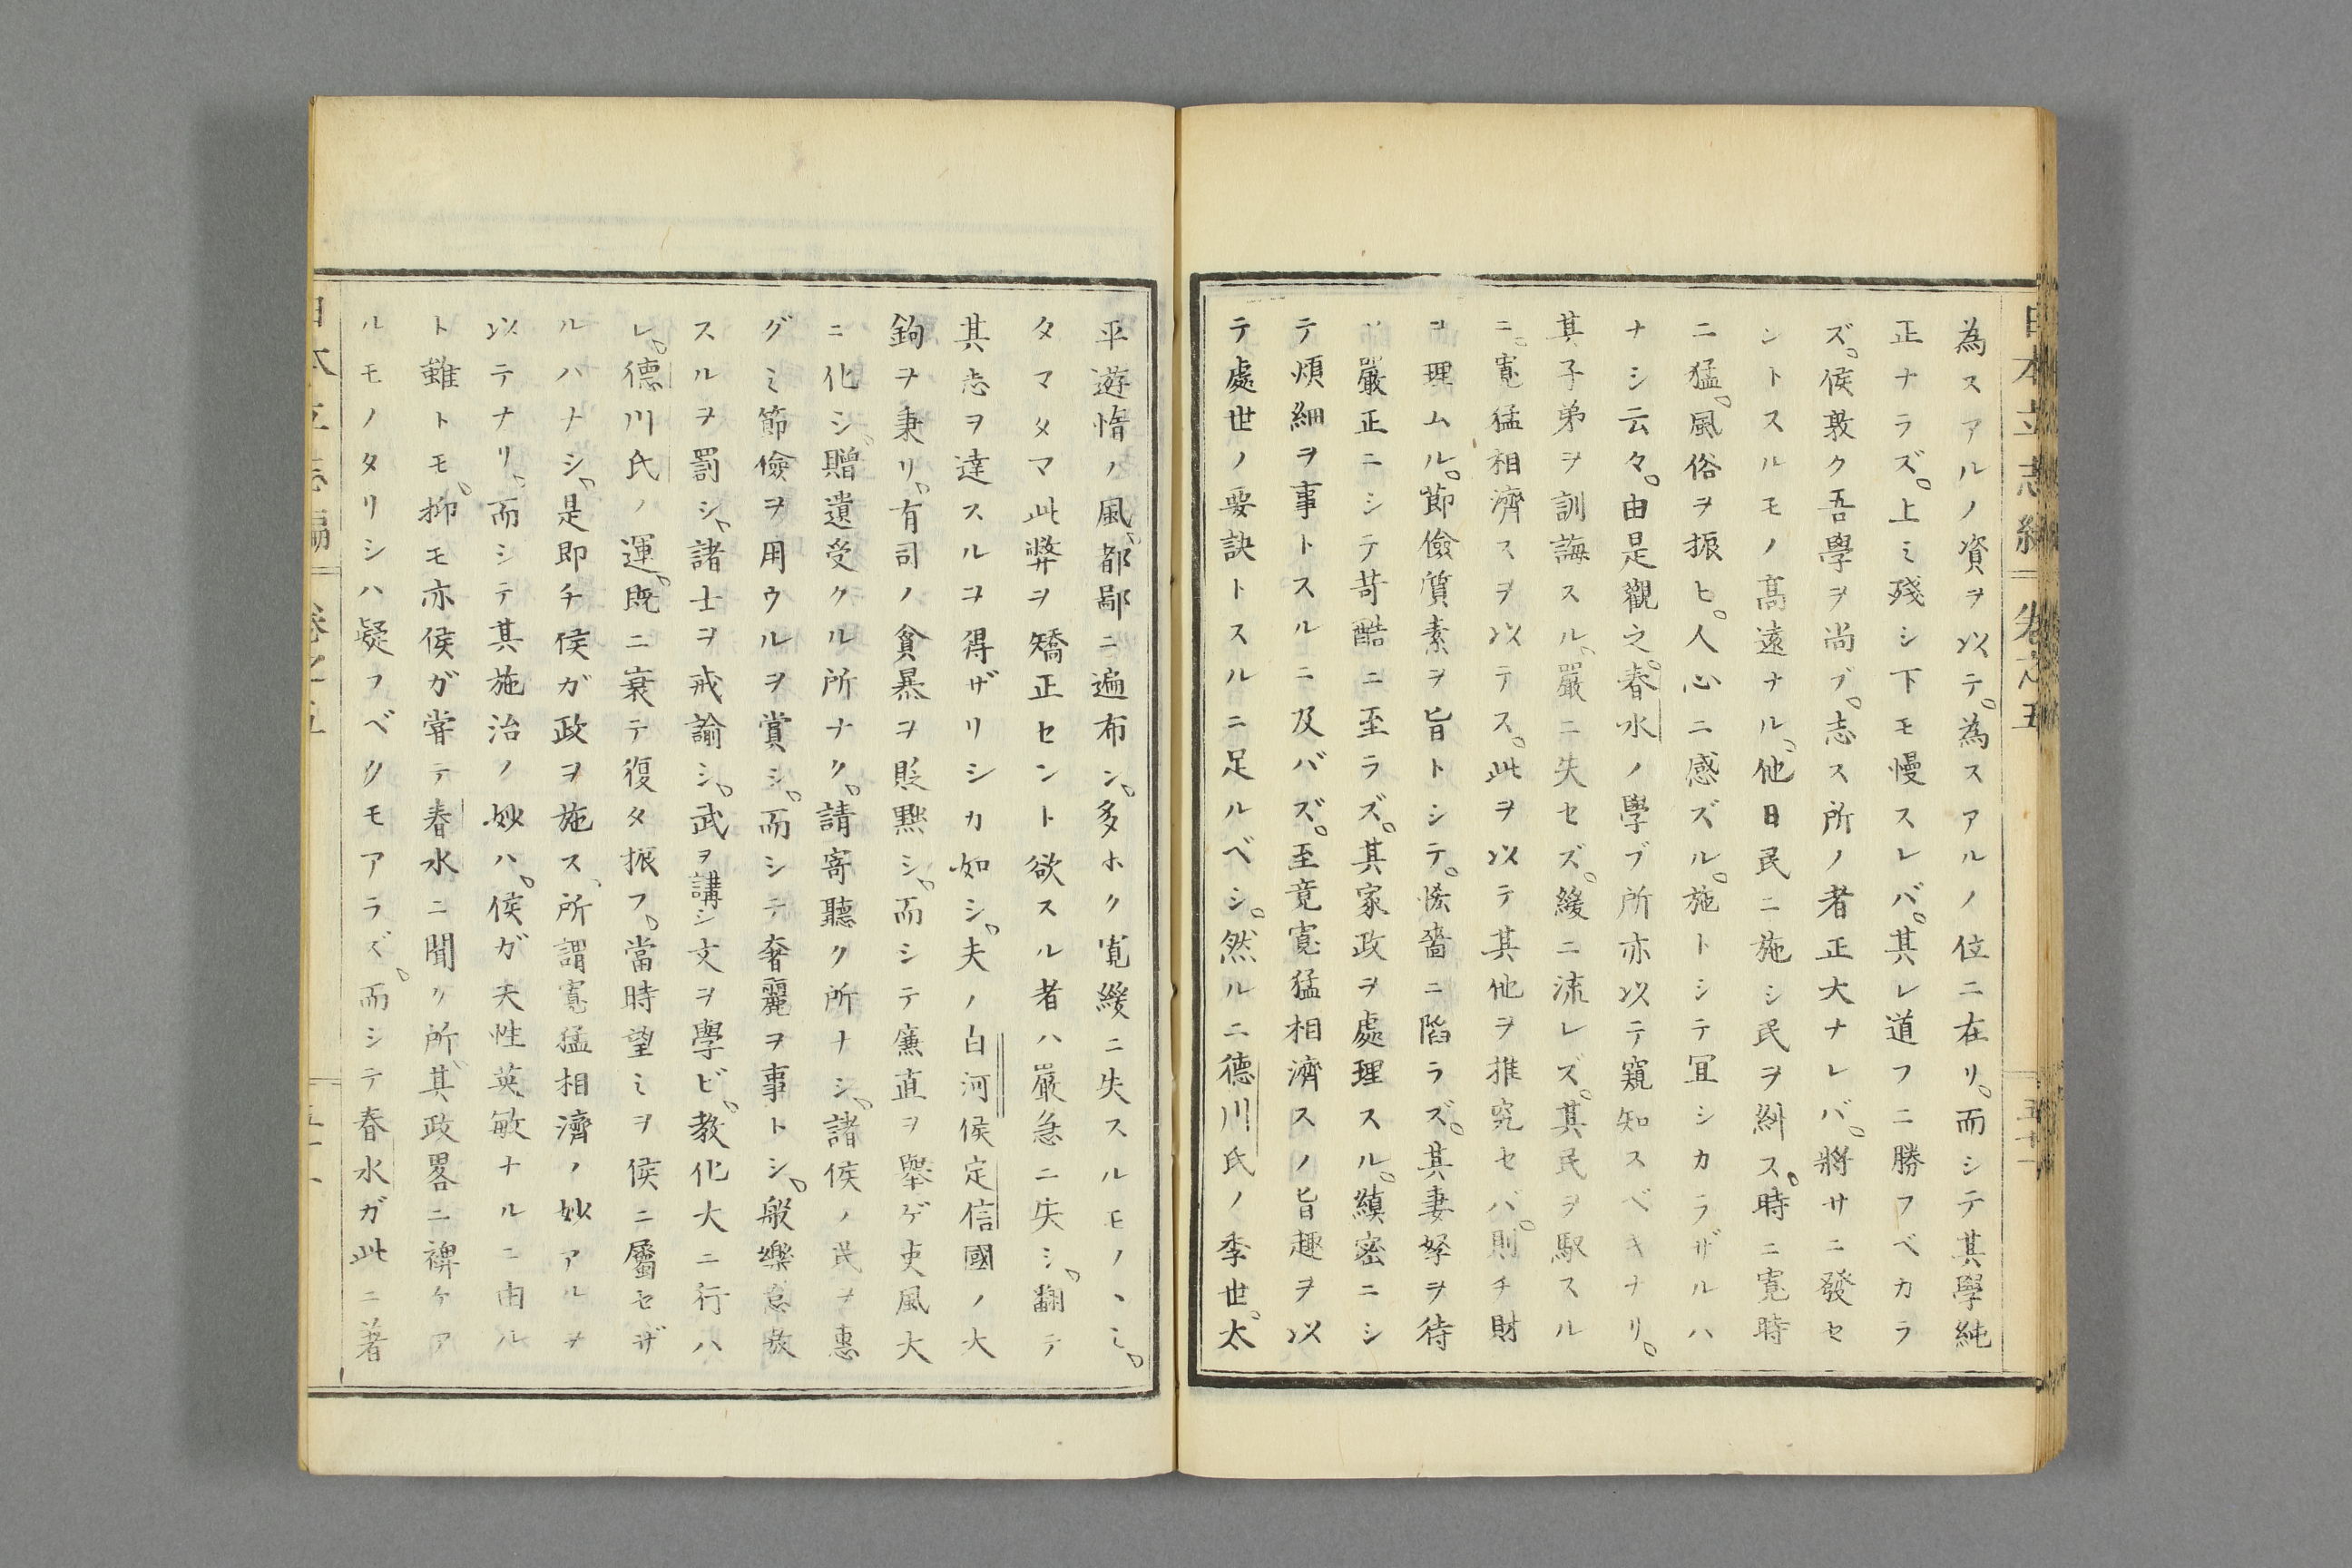 日本立志編 卷之五
為スアルノ資ヲ以テ。為スアルノ位ニ在リ。而シテ其學純
正ナラズ。上ミ殘シ下モ慢スレバ。其レ道フニ勝フベカラ
ズ。侯敦ク吾學ヲ尚ブ。志ス所ノ者正大ナレバ。將サニ發セ
シトスルモノ髙遠ナル。他日民ニ施シ民ヲ糾ス。時ニ寛時
ニ猛。風俗ヲ振ヒ。人心ニ感ズル。施トシテ冝シカラザルハ
ナシ云々。由是觀之。春水ノ學ブ所亦以テ窺知スベキナリ。
其子弟ヲ訓誨スル。嚴ニ失セズ。緩ニ流レズ。其民ヲ馭スル
ニ。寛猛相濟スヲ以テス。此ヲ以テ其他ヲ推究セバ。則チ財
ヲ理ムル。節儉質素ヲ旨トシテ。悋嗇ニ陷ラズ。其妻孥ヲ待
ツ嚴正ニシテ苛酷ニ至ラズ。其家政ヲ處理スル。縝密ニシ
テ煩細ヲ事トスルニ及バズ。至竟寛猛相濟スノ旨趣ヲ以
テ處世ノ要訣トスルニ足ルベシ。然ルニ德川氏ノ季世。太
平遊惰ノ風。都鄙ニ遍布シ。多ホク寛緩ニ失スルモノヽミ。
タマタマ此弊ヲ矯正セント欲スル者ハ嚴急ニ失シ。翻テ
其志ヲ達スルヲ得ザリシカ如シ。夫ノ白河侯定信國ノ大
鈞ヲ秉リ。有司ノ貪暴ヲ貶黙シ。而シテ廉直ヲ舉ゲ吏風大
ニ化シ。贈遺受クル所ナク。請寄聽ク所ナシ。諸侯ノ民ヲ惠
グミ節儉ヲ用ウルヲ賞シ。而シテ奢麗ヲ事トシ。般樂怠敖
スルヲ罰シ。諸士ヲ戒諭シ。武ヲ講シ文ヲ學ビ。教化大ニ行ハ
レ。德川氏ノ運。既ニ衰テ復タ振フ。當時望ミヲ侯ニ屬セザ
ルハナシ。是即チ侯ガ政ヲ施ス。所謂寛猛相濟ノ妙アルヲ
以テナリ。而シテ其施治ノ妙ハ。侯ガ天性英敏ナルニ由ル
ト雖トモ。抑モ亦侯ガ甞テ春水ニ聞ク所。其政畧ニ裨ケア
ルモノタリシハ疑フベクモアラズ。而シテ春水ガ此ニ著
日本立志編 卷之五